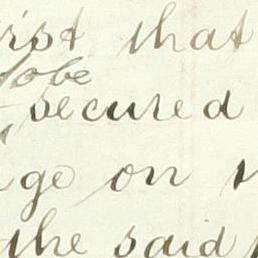 rist that
to be
secured
ge on
the said